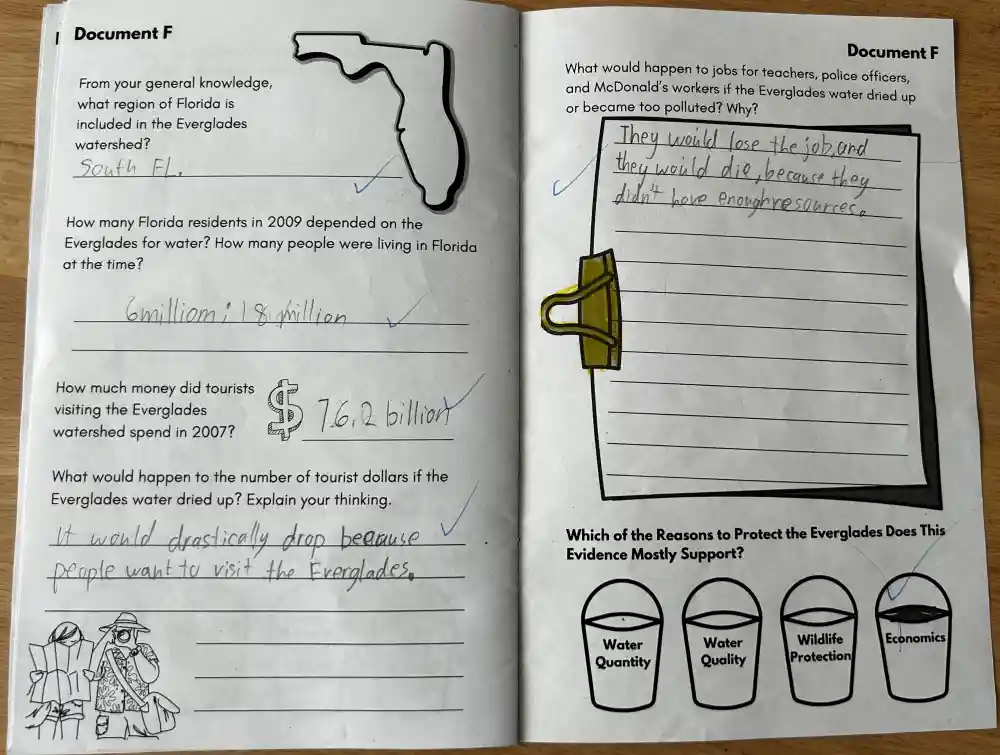 Document F
From your general knowledge,
what region of Florida is
included in the Everglades
watershed?
South FL.
How many Florida residents in 2009 depended on the
Everglades for water? How many people were living in Florida
at the time?
6 milliom; 18 million
How much money did tourists
visiting the Everglades
watershed spend in 2007?
$ 76.2 billion
What would happen to the number of tourist dollars if the
Everglades water dried up? Explain your thinking.
It would drastically drop because
people want to visit the Everglades.
Document F
What would happen to jobs for teachers, police officers,
and McDonald's workers if the Everglades water dried up
or became too polluted? Why?
They would lose the job, and
they would die, because they
didn't have enough resources.
Which of the Reasons to Protect the Everglades Does This
Evidence Mostly Support?
Water
Quantity
Water
Quality
Wildlife
Protection
Economics